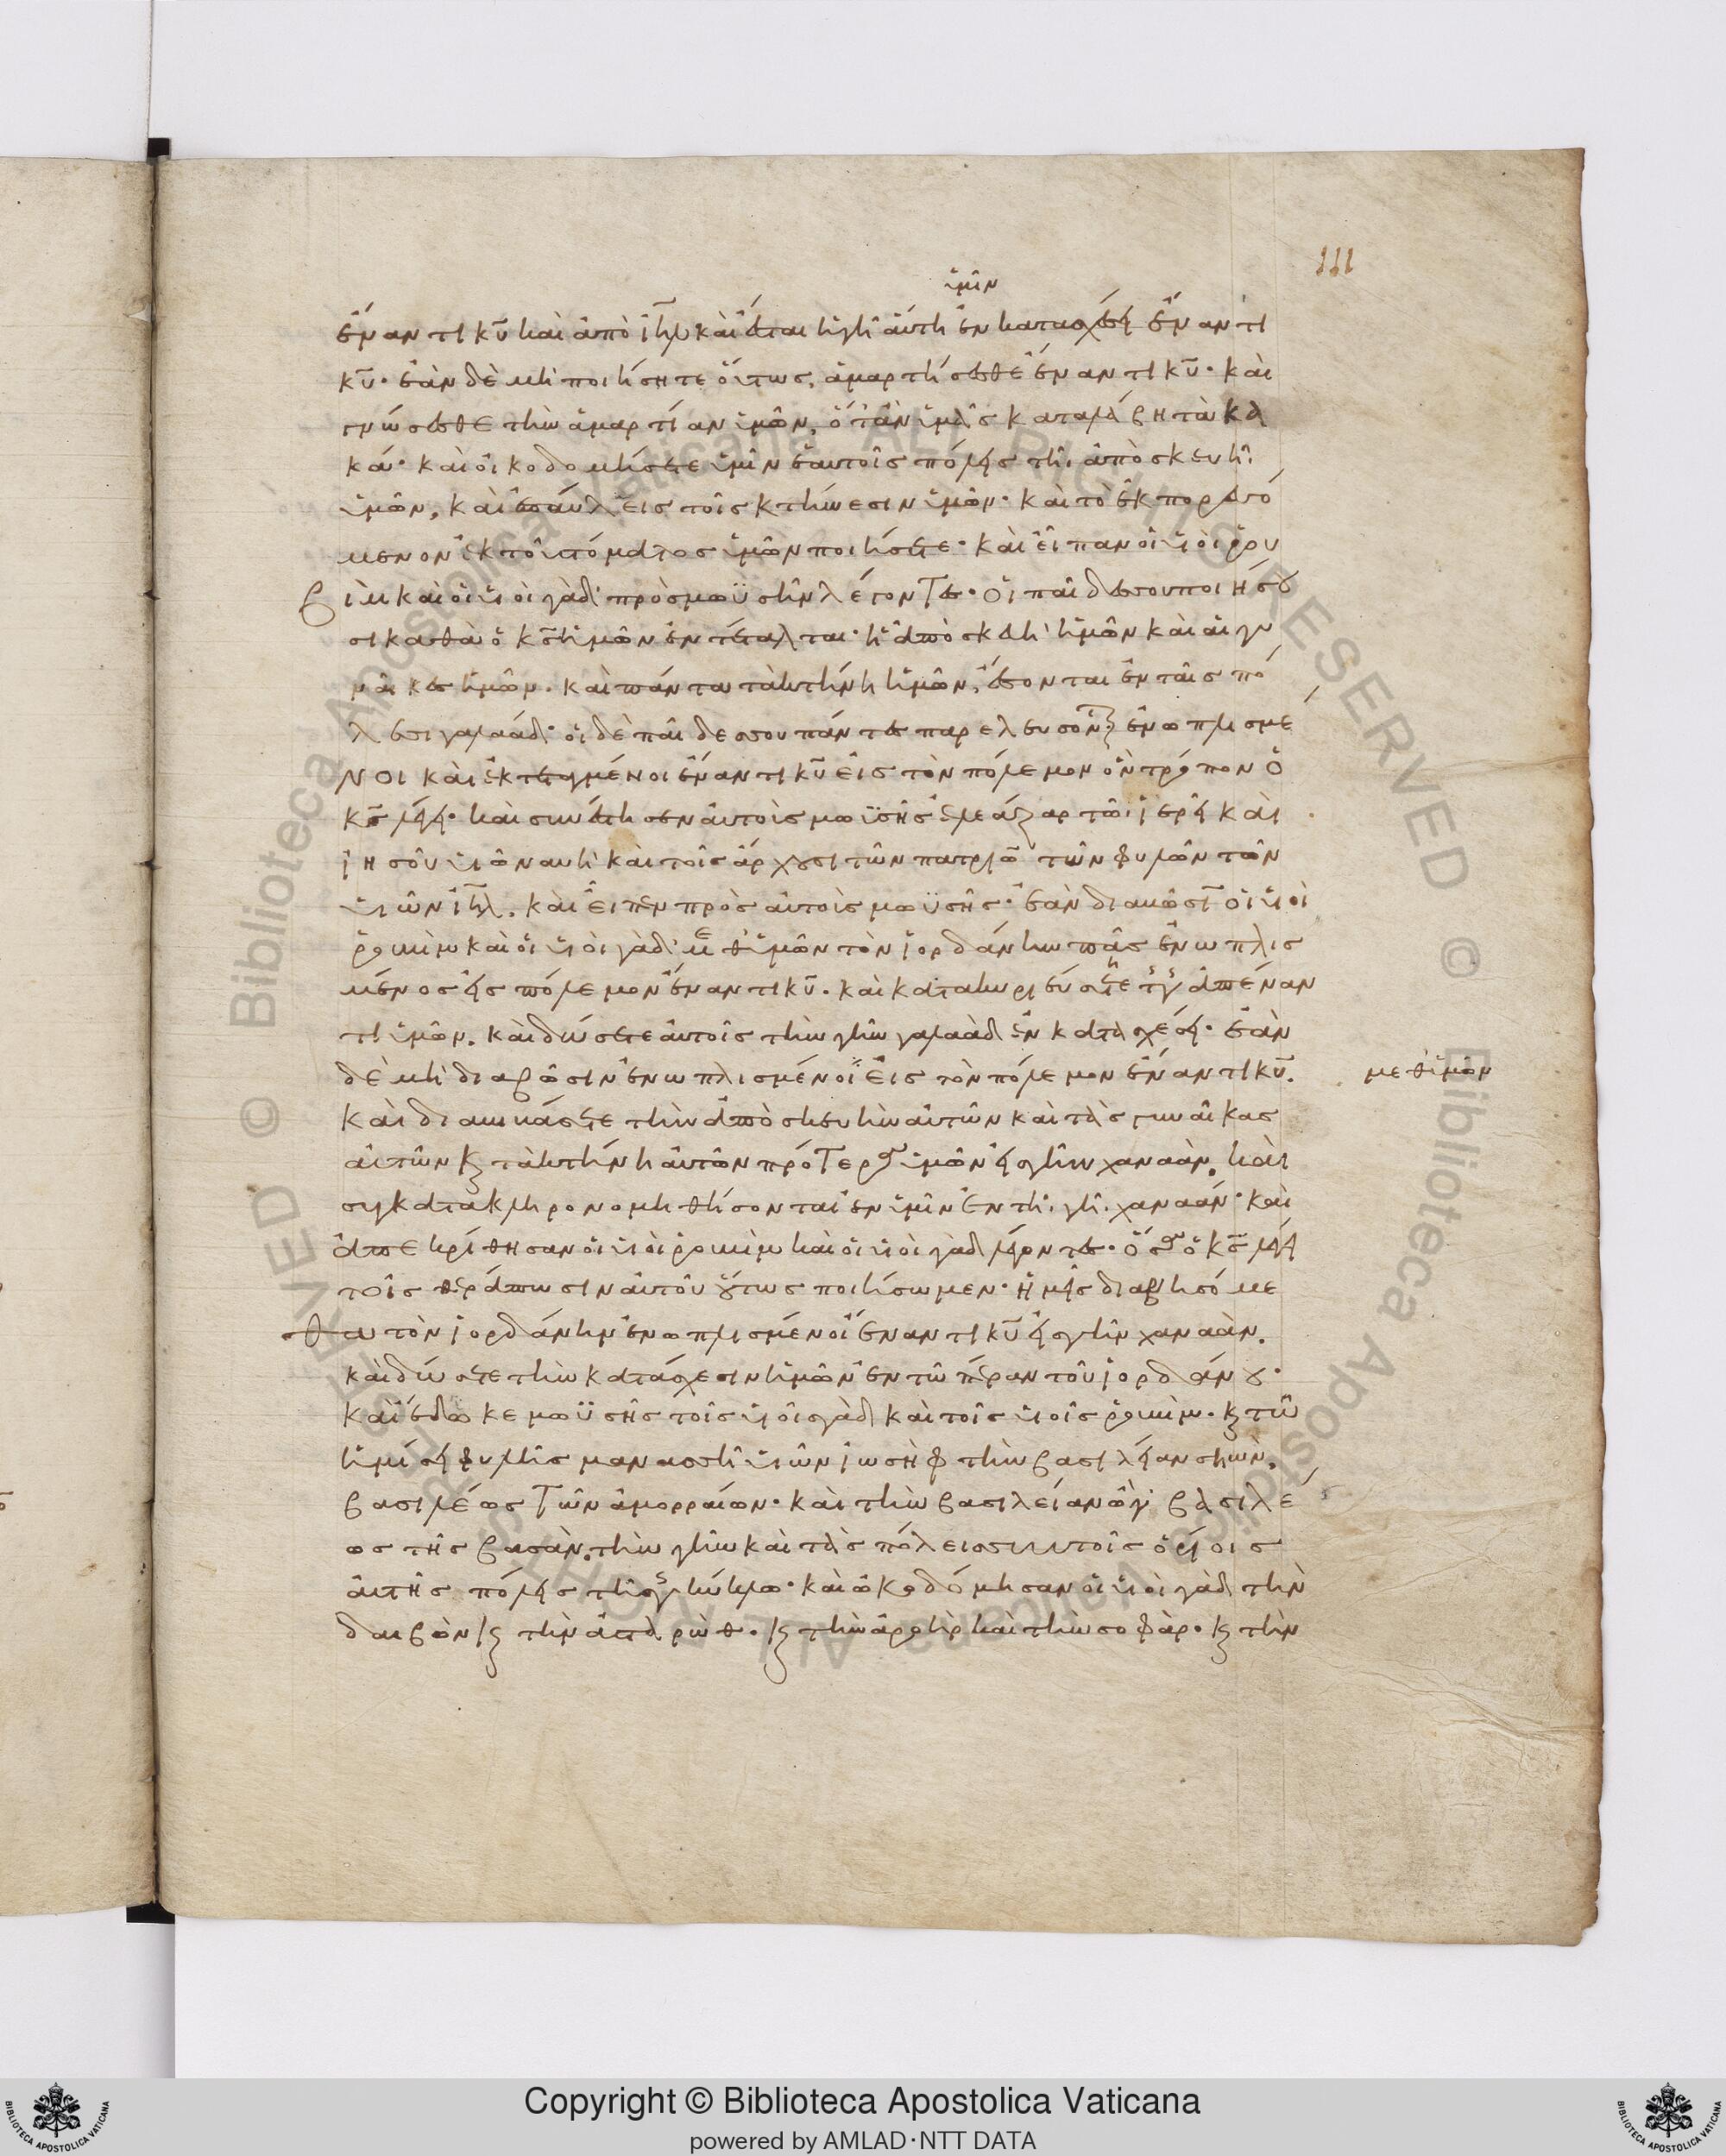 111
ὑμῖν
ἔναντι κ̅υ̅ καὶ ἀπὸ ι̅η̅λ̅ καὶ ἔσται ἡ γῆ αὕτη ἐν κατασχέσει ἔναντι
κ̅υ̅· ἐὰν δὲ μὴ ποιήσητε οὕτως, ἁμαρτήσεσθε ἔναντι κ̅υ̅· καὶ
γνώσεσθε τὴν ἁμαρτίαν ὑμῶν, ὅταν ὑμᾶς καταλάβῃ τὰ κα
κά· καὶ οἰκοδομήσετε ὑμῖν ἑαυτοῖς πόλεις τῇ ἀποσκευῇ
ὑμῶν, καὶ ἐπαύλεις τοῖς κτήνεσιν ὑμῶν· καὶ τὸ ἐκπορευό
μενον ἐκ τοῦ στόματος ὑμῶν ποιήσετε· καὶ εἶπαν οἱ υἱοὶ ῥου
βὶμ καὶ οἱ υἱοὶ γὰδ πρὸς μωϋσῆν λέγοντες· οἱ παῖδές σου ποιήσου
σι καθὰ ὁ κ̅ς̅ ἡμῶν ἐντέταλται· ἡ ἀποσκευὴ ἡμῶν καὶ αἱ γυ
ναῖκες ἡμῶν· καὶ πάντα τὰ κτήνη ἡμῶν, ἔσονται ἐν ταῖς πό
λεσι γαλαάδ· οἱ δὲ παῖδες σου πάντες παρελεύσονται ἐνωπλισμέ
νοι καὶ ἐκτεταγμένοι ἔναντι κ̅υ̅ εἰς τὸν πόλεμον ὃν τρόπον ὁ
κ̅ς̅ λέγει· καὶ συνέστησεν αὐτοῖς μωϋσῆς ἐλεάζαρ τῶι ἱερεῖ καὶ
ἰησοῦ υἱῶ ναυῆ καὶ τοῖς ἄρχουσι τῶν πατριῶν τῶν φυλῶν τῶν
υἱῶν ι̅η̅λ̅. καὶ εἶπεν πρὸς αὐτοὺς μωϋσῆς· ἐὰν διαβῶσιν οἱ υἱοὶ
ῥουβὶμ καὶ οἱ υἱοὶ γὰδ μεθ' ὑμῶν τὸν ἰορδάνην πᾶς ἐνωπλισ
μένος εἰς πόλεμον ἔναντι κ̅υ̅. καὶ κατακυριεύσητε τῆς γῆς ἀπέναν
τι ὑμῶν. καὶ δώσετε αὐτοῖς τὴν γῆν γαλαὰδ ἐν κατασχέσει· ἐὰν
δὲ μὴ διαβῶσιν ἐνωπλισμένοι εἰς τὸν πόλεμον ἔναντι κ̅υ̅.
μεθ' ὑμῶν
καὶ διαβιβάσετε τὴν ἀποσκευὴν αὐτῶν καὶ τὰς γυναῖκας
αὐτῶν καὶ τὰ κτήνη αὐτῶν πρότερον ὑμῶν εἰς γῆν χαναάν. καὶ
συγκατακληρονομηθήσονται ἐν ὑμῖν ἐν τῇ γῇ χαναάν· καὶ
ἀπεκρίθησαν οἱ υἱοὶ ῥουβὶμ καὶ οἱ υἱοὶ γὰδ λέγοντες· ὅσα ὁ κ̅ς̅ λέγει
τοῖς θεράπουσιν αὐτοῦ οὕτως ποιήσωμεν· ἡμεῖς διαβησόμε
θα τὸν ἰορδάνην ἐνωπλισμένοι ἔναντι κ̅υ̅ εἰς γῆν χαναάν.
καὶ δώσετε τὴν κατάσχεσιν ἡμῶν ἐν τῶ πέραν τοῦ ἰορδάνου·
καὶ ἔδωκε μωϋσῆς τοῖς υἱοῖς γὰδ καὶ τοῖς υἱοῖς ῥουβὶμ· καὶ τῶ
ἡμίσει φυλῆς μανασσῆ υἱῶν ἰωσὴφ τὴν βασιλείαν σηὼν,
βασιλέως τῶν ἀμορραίων· καὶ τὴν βασιλείαν ὢγ βασιλέ
ως τῆς βασάν. τὴν γῆν καὶ τὰς πόλεις σὺν τοῖς ὁρίοις
αὐτῆς πόλεις τῆς γῆς κύκλω· καὶ ὠκοδόμησαν οἱ υἱοὶ γὰδ τὴν
δαιβὼν καὶ τὴν ἀσταρώθ· καὶ τὴν ἀροὴρ καὶ τὴν σοφάρ· καὶ τὴν